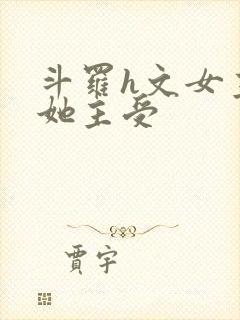 斗羅h文女主
她主受
賈宇